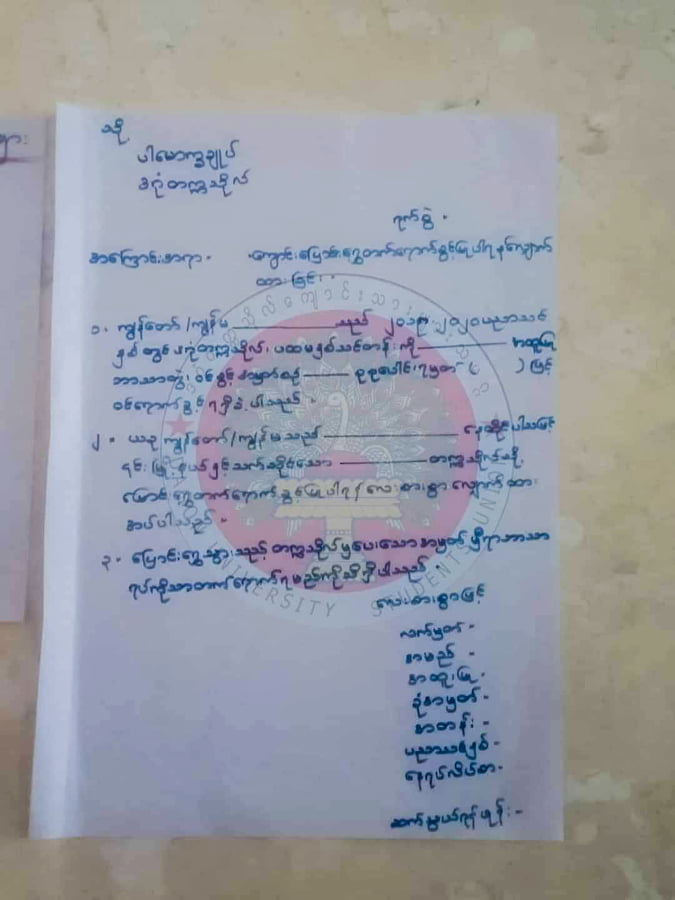 သို့
ပါမောက္ခချုပ်
ဒဂုံတက္ကသိုလ်
ရက်စွဲ -
အကြောင်းအရာ - ကျောင်းပြောင်းရွှေ့တက်ရောက်ခွင့်ပြုပါရန်လျှောက်
ထားခြင်း။
၁။ ကျွန်တော်/ကျွန်မ သည် ၂၀၁၉-၂၀၂၀ပညာသင်
နှစ်တွင် ဒဂုံတက္ကသိုလ်၊ ပထမနှစ်သင်တန်းကို အထူးပြု
ဘာသာတွဲ၊ ဝင်ခွင့်အမှတ်စဉ် ဥဥပေါင်းရမှတ် ( ) ဖြင့်
ဝင်ရောက်ခွင့်ရရှိခဲ့ပါသည်။
၂။ ယခု ကျွန်တော်/ကျွန်မသည် နေထိုင်ပါသဖြင့်
၎င်းမြို့နယ်နှင့်သက်ဆိုင်သော တက္ကသိုလ်သို့
ပြောင်းရွှေ့တက်ရောက်ခွင့်ပြုပါရန် လေးစားစွာ လျှောက်ထား
အပ်ပါသည်။
၃။ ပြောင်းရွှေ့သွားသည့်တက္ကသိုလ်မှပေးသောအမှတ်မှီရာဘာသာ
ရပ်ကိုသာတက်ရောက်ရမည်ကိုသိရှိပါသည်။
လေးစားစွာဖြင့်
လက်မှတ် -
အမည် -
အထူးပြု -
ခုံအမှတ် -
အတန်း -
ပညာသင်နှစ် -
နေရပ်လိပ်စာ -
ဆက်သွယ်ရန်ဖုန်း -
UNIVERSITY STUDENTS' UNION